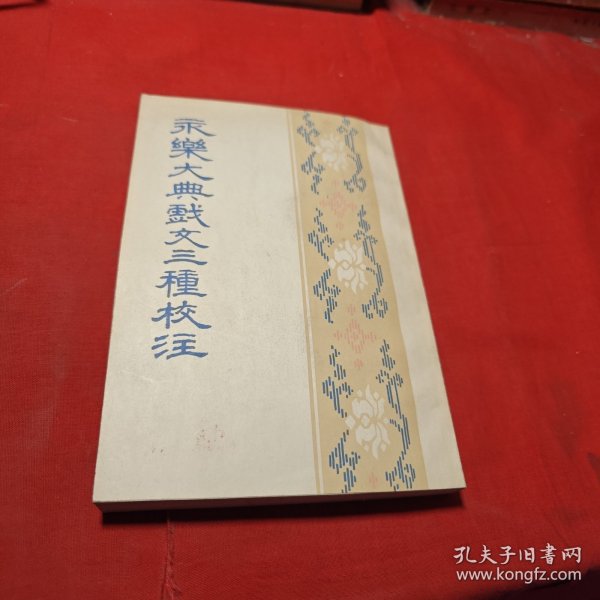 永樂大典戲文三種校注
孔夫子旧書网
www.kongfz.com